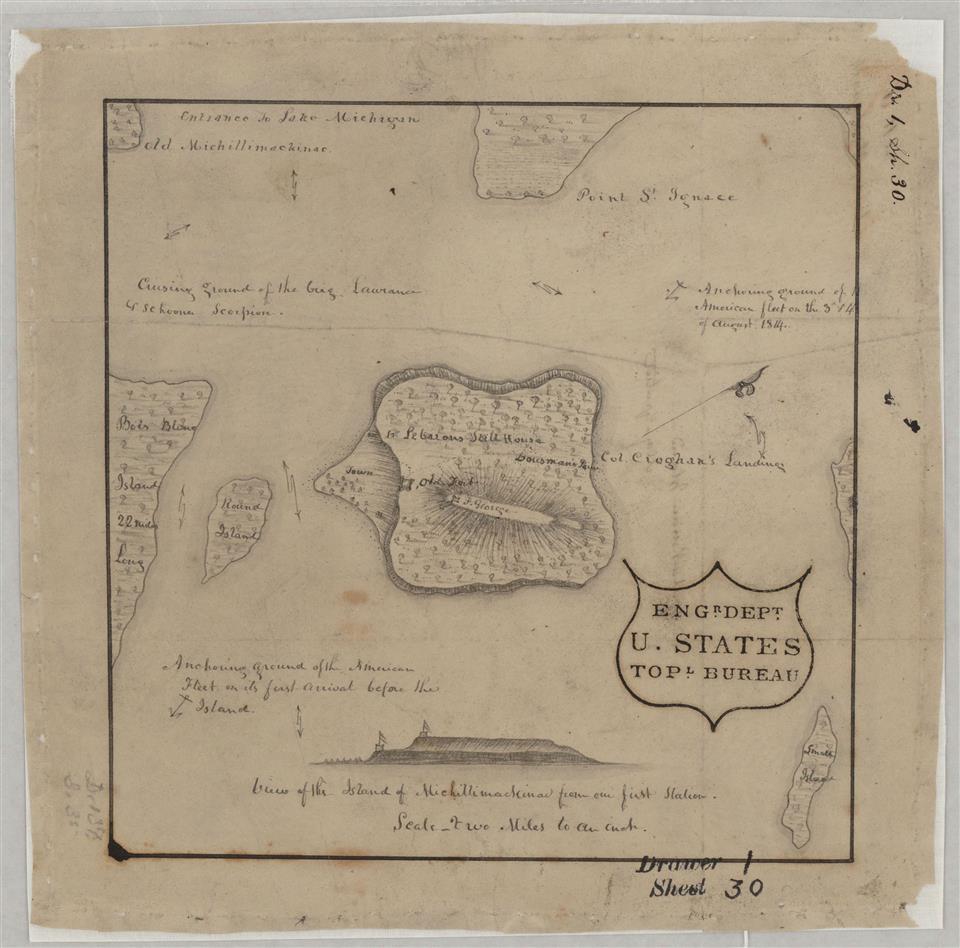 Dr. 1, Sh. 30.
Entrance to Lake Michigan
Old Michillimackinac.
Point St. Ignace
Cruising ground of the brig Lawrance
& Schooner Scorpion.
Anchoring ground of
American fleet on the 3d & 4
of August 1814.
Bois Blanc
Island
22 miles
Long
Round
Island
Town
Lebarons Still House
Dousmans
Col. Croghan's Landing
Old Fort
Ft. George
ENGR. DEPT.
U. STATES
TOPL. BUREAU
Anchoring ground of the American
Fleet on its first arrival before the
Island.
Small
Island
View of the Island of Michillimackinac from our first Station.
Scale - Two Miles to an inch.
Drawer 1
Sheet 30